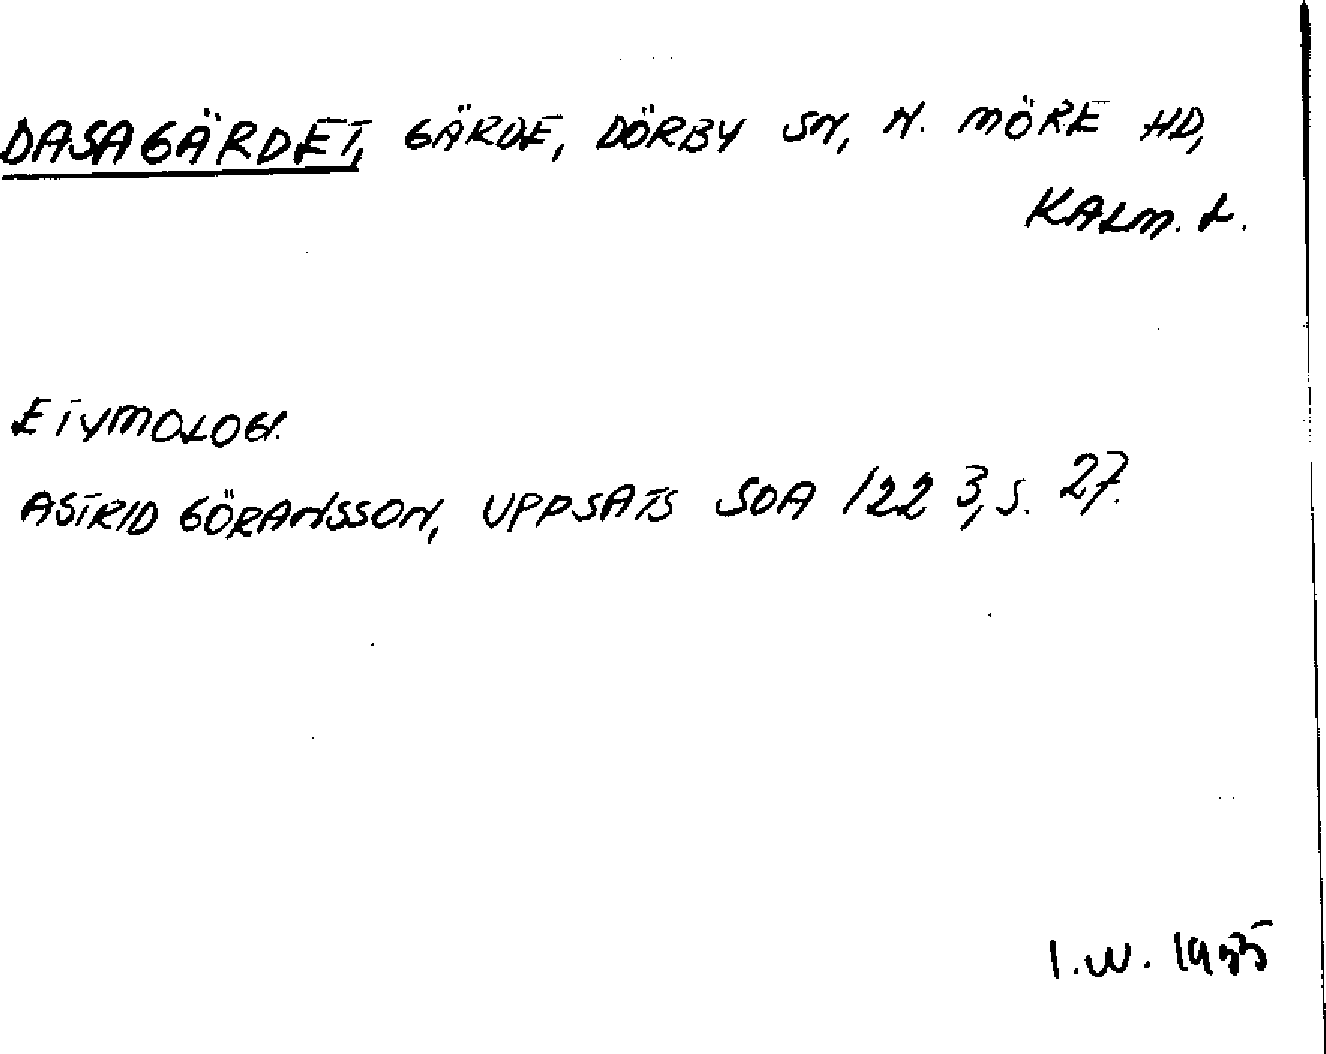 DASAGÄRDET, GÄRDE, DÖRBY SN, N. MÖRE HD,
KALM. L.
ETYMOLOGI.
ASTRID GÖRANSSON, UPPSATS SOA 1223, S. 27.
I.W. 1955